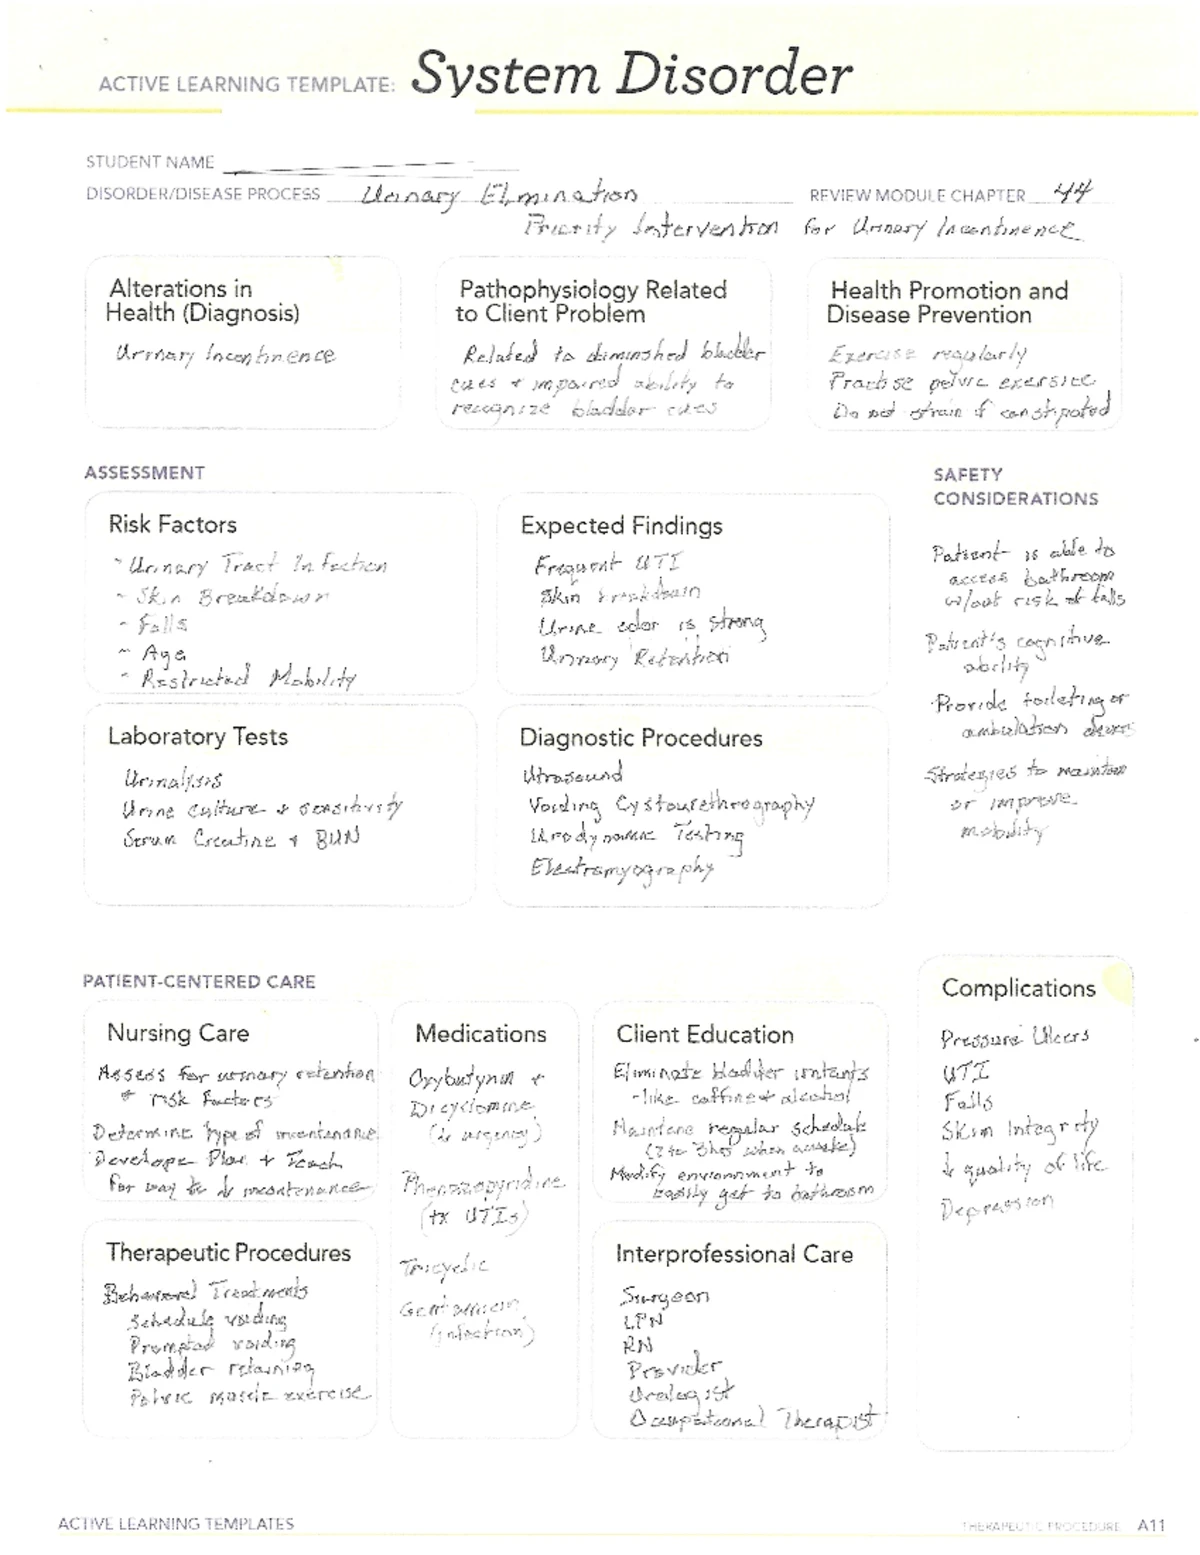 ACTIVE LEARNING TEMPLATE: System Disorder
STUDENT NAME
DISORDER/DISEASE PROCESS Urinary Elimination REVIEW MODULE CHAPTER 44
Priority Intervention for Urinary Incontinence
Alterations in
Health (Diagnosis)
Urinary Incontinence
Pathophysiology Related
to Client Problem
Related to diminshed bladder
cues + impaired ability to
recognize bladder cues
Health Promotion and
Disease Prevention
Exercise regularly
Practise pelvic exersice
Do not strain if constipated
ASSESSMENT
SAFETY
CONSIDERATIONS
Risk Factors
- Urinary Tract Infection
- Skin Breakdown
- Falls
- Age
- Restricted Mobility
Expected Findings
Frequent UTI
Skin breakdain
Urine odor is strong
Urinary Retention
Patient is able to
access bathroom
w/out risk of falls
Patient's cognitive
ability
Provide toileting or
ambulation
Strategies to maintain
or improve
mobility
Laboratory Tests
Urinalysis
Urine culture + sensitivity
Serum Creatine + BUN
Diagnostic Procedures
Utrasound
Voiding Cystourethrography
Urodynamic Testing
Electromyography
PATIENT-CENTERED CARE
Nursing Care
Assess for urinary retention
+ risk factors
Determine type of incontenance
Develope Plan + Teach
for way to ↓ incontenance
Medications
Oxybutynin +
Dicyclomine
(↓ urgency)
Phenazopyridine
(tx UTIs)
Tricyclic
Gentamicin
(infection)
Client Education
Eliminate bladder irritants
-like caffine + alcohol
Maintane regular schedule
(2 to 3hrs when awake)
Modify environment to
easily get to bathroom
Complications
Pressure Ulcers
UTI
Falls
Skin Integrity
↓ quality of life
Depression
Therapeutic Procedures
Behavioral Treatments
Schedule voiding
Prompted voiding
Bladder retaining
Pelvic muscle exercise
Interprofessional Care
Surgeon
LPN
RN
Provider
Urologist
Occupational Therapist
ACTIVE LEARNING TEMPLATES
THERAPEUTIC PROCEDURE A11